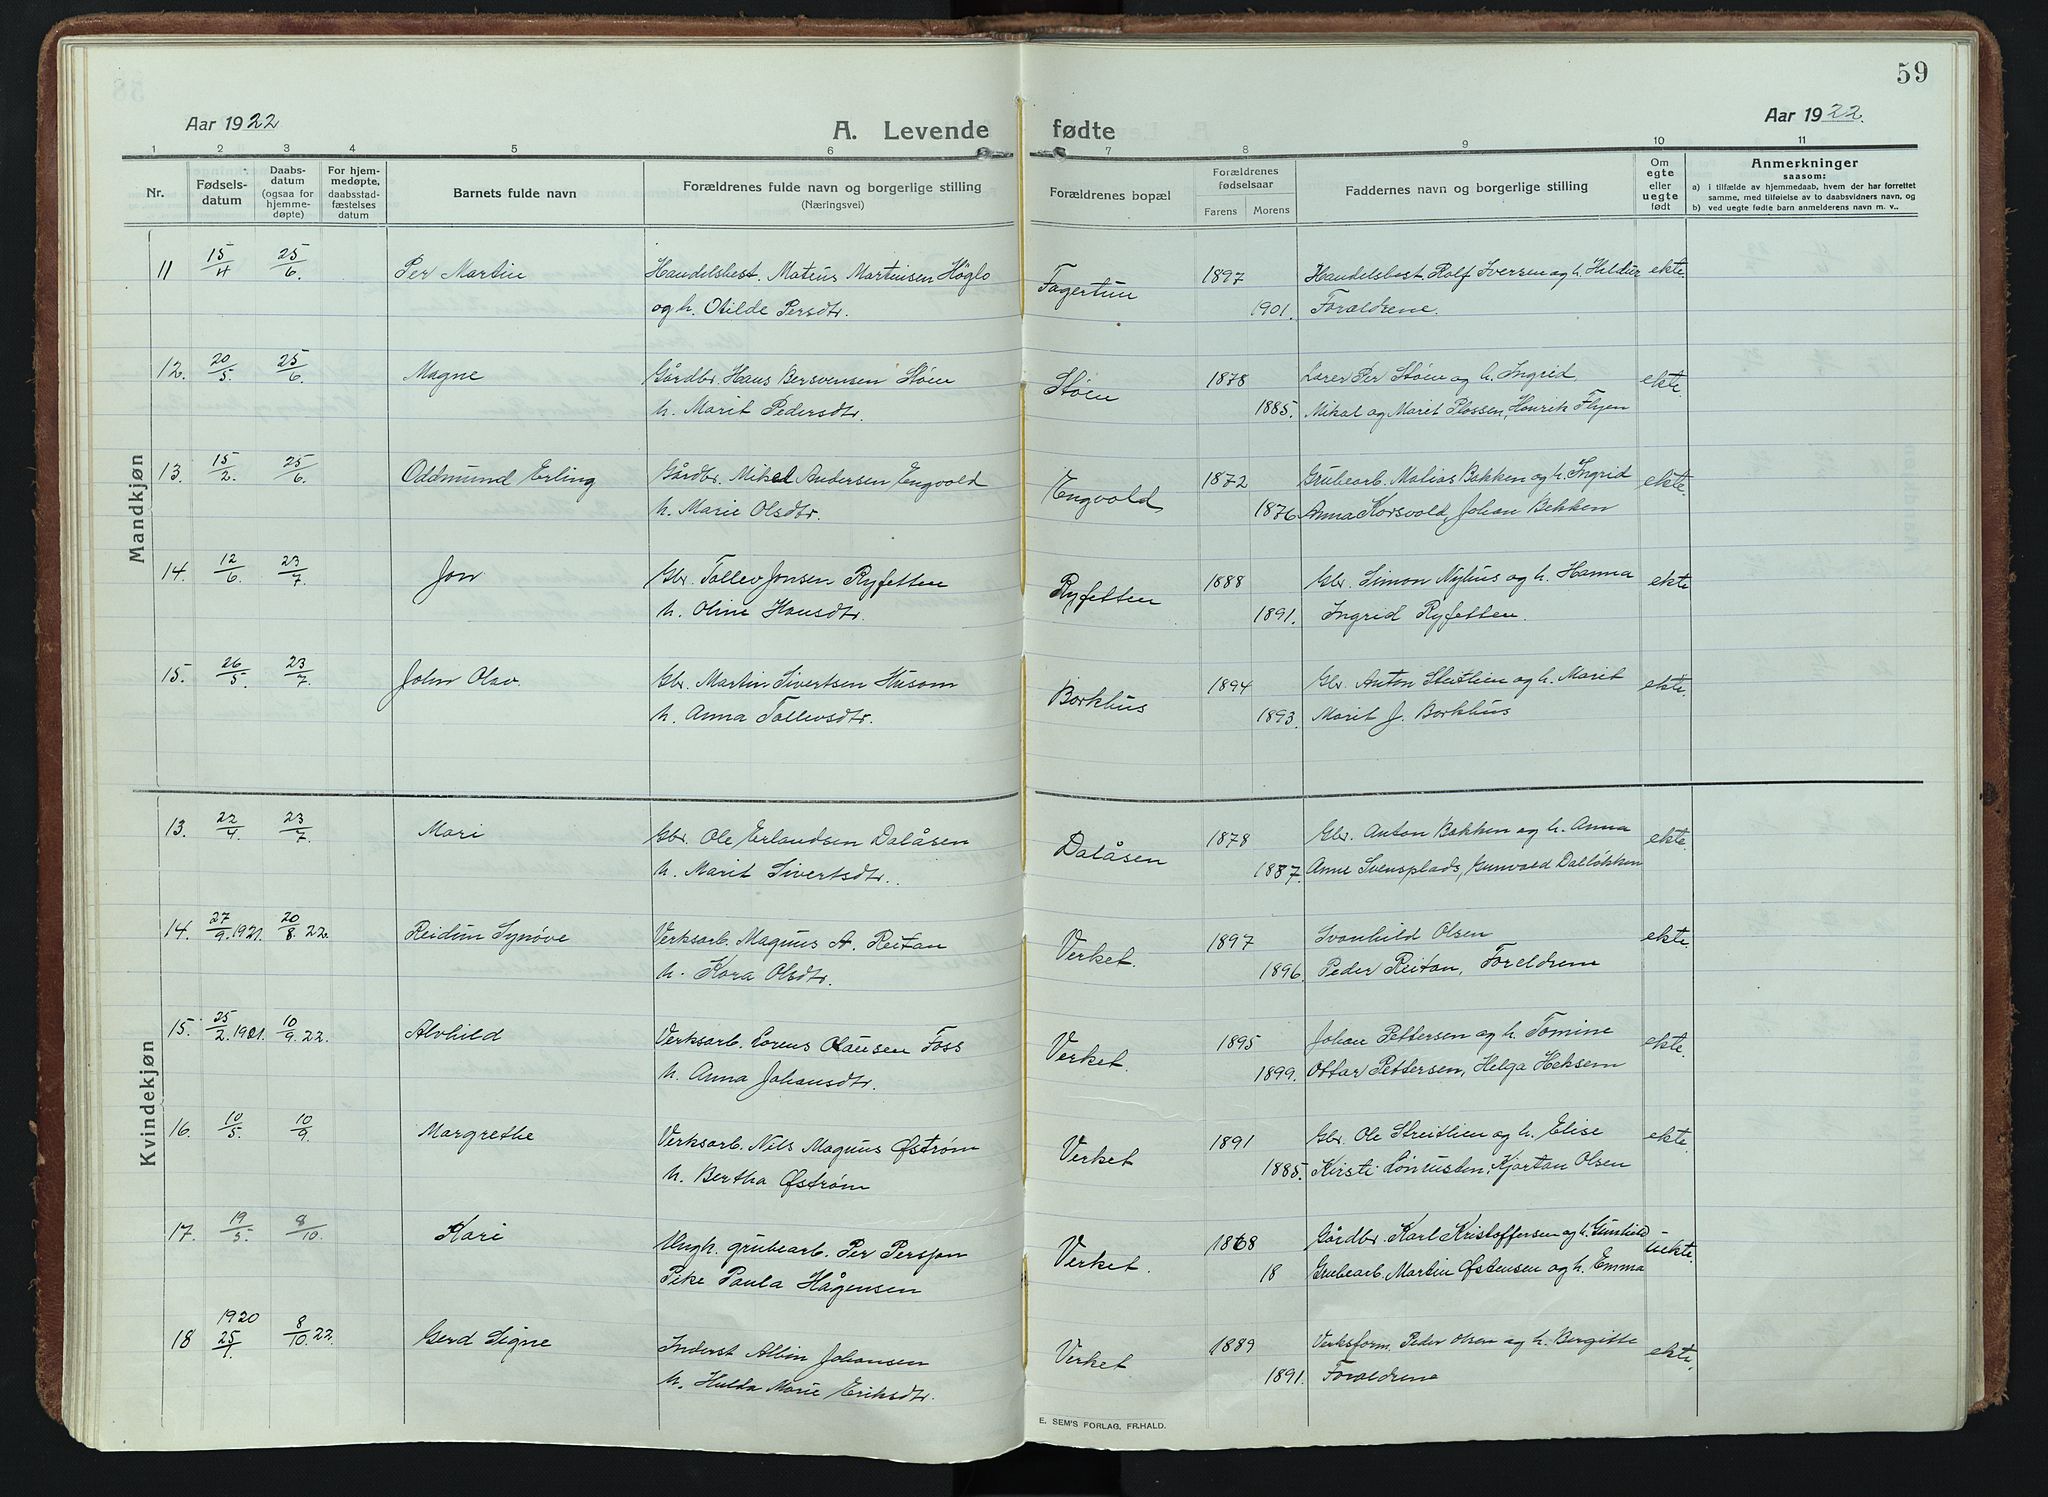 59
Aar 1922
A. Levende fødte
Aar 1922.
1 2 3 4 5 6 7 8 9 10 11
Nr.
Fødsels-
datum
Daabs-
datum
(ogsaa for
hjemme-
døpte)
For hjem-
medøpte,
daabsstad-
fæstelses
datum
Barnets fulde navn
Forældrenes fulde navn og borgerlige stilling
(Næringsvei)
Forældrenes bopæl
Forældrenes
fødselsaar
Farens Morens
Faddernes navn og borgerlige stilling
Om
egte
eller
uegte
født
Anmerkninger
saasom:
a) i tilfælde av hjemmedaab, hvem der har forrettet
samme, med tilføielse av to daabsvidners navn, og
b) ved uegte fødte barn anmelderens navn m. v..
Mandkjøn
11 15/4 25/6. Per Martin Handelsbest. Mateus Martinsen Høglo Fagertun 1897 Handelsbest. Rolf Iversen og h. Hildur ekte.
og h. Otilde Persdtr. 1901. Forældrene.
12. 20/5. 25/6. Magne Gårdbr. Hans Bersvensen Støen Støen 1878 Lærer Per Støen og h. Ingrid ekte.
h. Marit Pedersdtr. 1885. Mikal og Marit Plassen, Henrik Flyen
13. 15/2. 25/6. Oddmund Erling Gårdbr. Mikal Andersen Engvold Engvold 1872 Grubearb. Matias Bakken og h. Ingrid ekte.
h. Marie Olsdtr. 1876 Anna Korsvold, Johan Bekken
14. 12/6. 23/7. Jon Gbr. Tollev Jonsen Ryfetten Ryfetten 1888 Gbr. Simon Nyhus og h. Hanna ekte
h. Oline Hansdtr. 1891. Ingrid Ryfetten.
15. 26/5. 23/7. John Olav Gbr. Martin Sivertsen Husom Borkhus 1894 Gbr. Anton Steitlien og h. Marit ekte.
h. Anna Tollevsdtr. 1893. Marit J. Borkhus
Kvindekjøn
13. 22/4. 23/7 Mari Gbr. Ole Erlandsen Dalåsen Dalåsen 1878 Gbr. Anton Bakken og h. Anna ekte.
h. Marit Sivertsdtr. 1887. Anne Svensplads, Gunvald Dalløkken
14. 27/9. 1921. 20/8. 22. Reidun Synøve Verksarb. Magnus A. Reitan Verket. 1897 Svanhild Olsen ekte.
h. Kara Olsdtr. 1896. Peder Reitan, Foreldrene
15. 25/2. 1921. 10/9. 22. Alvhild Verksarb. Lorens Clausen Foss Verket. 1895 Johan Pettersen og h. Tomine ekte.
h. Anna Johansdtr. 1899. Ottar Pettersen, Helga Heksem
16. 10/5. 10/9. Margrethe Verksarb. Nils Magnus Østrøm Verket 1891 Gbr. Ole Streitlien og h. Elise ekte.
h. Bertha Østrøm 1885. Kirsti Lønrusten, Kjartan Olsen
17. 19/5. 8/10. Kari Ungk. grubearb. Per Persson Verket. 1868 Gårdbr. Karl Kristoffersen og h. Gunhild uekte.
Pike Paula Hågensen 18 Grubearb. Martin Østensen og h. Emma
1920
18 25/1 8/10. 22. Gerd Signe Inderst Albin Johansen Verket 1889 Verksform. Peder Olsen og h. Bergitte ekte.
h. Hulda Marie Eriksdtr. 1891. Forældrene
E. SEM'S FORLAG, FR.HALD.